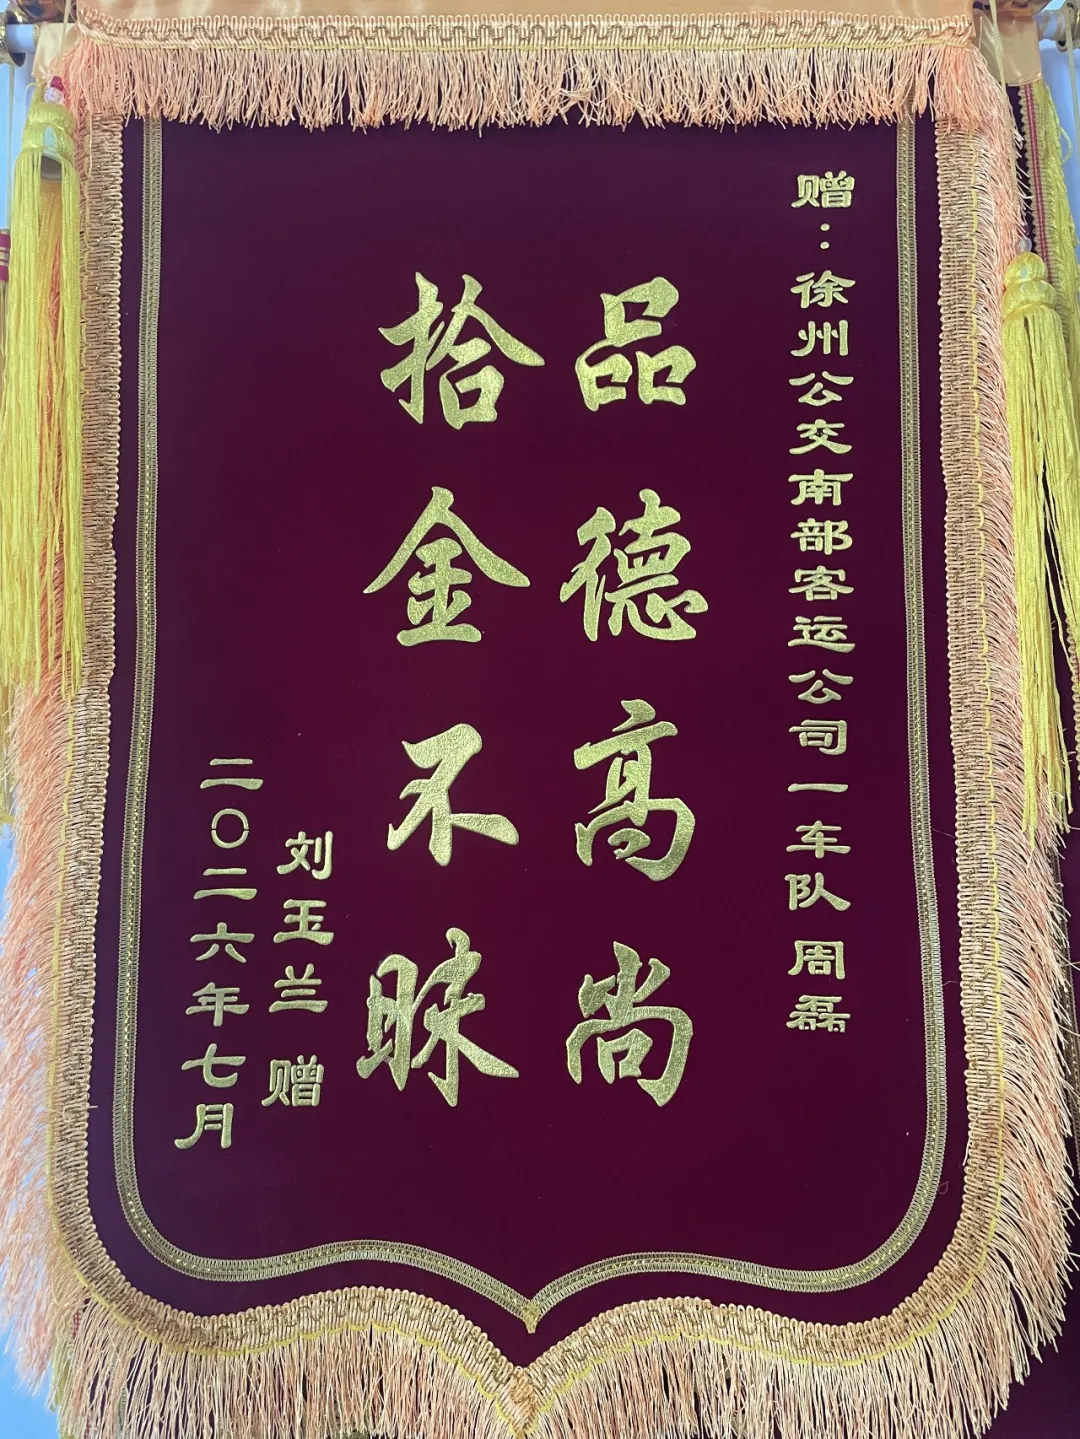 赠：徐州公交南部客运公司一车队 周磊
品德高尚
拾金不昧
刘玉兰 赠
二〇二六年七月